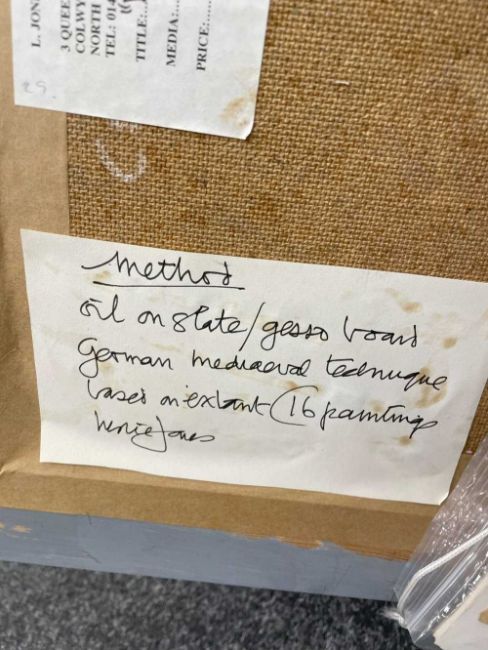 L. JON
3 QUEE
COLWY
NORTH
TEL: 014
TITLE:...
MEDIA:...
PRICE:......
29.
Method
oil on slate/gesso board
German mediaeval technique
based on extant C16 paintings
Jones